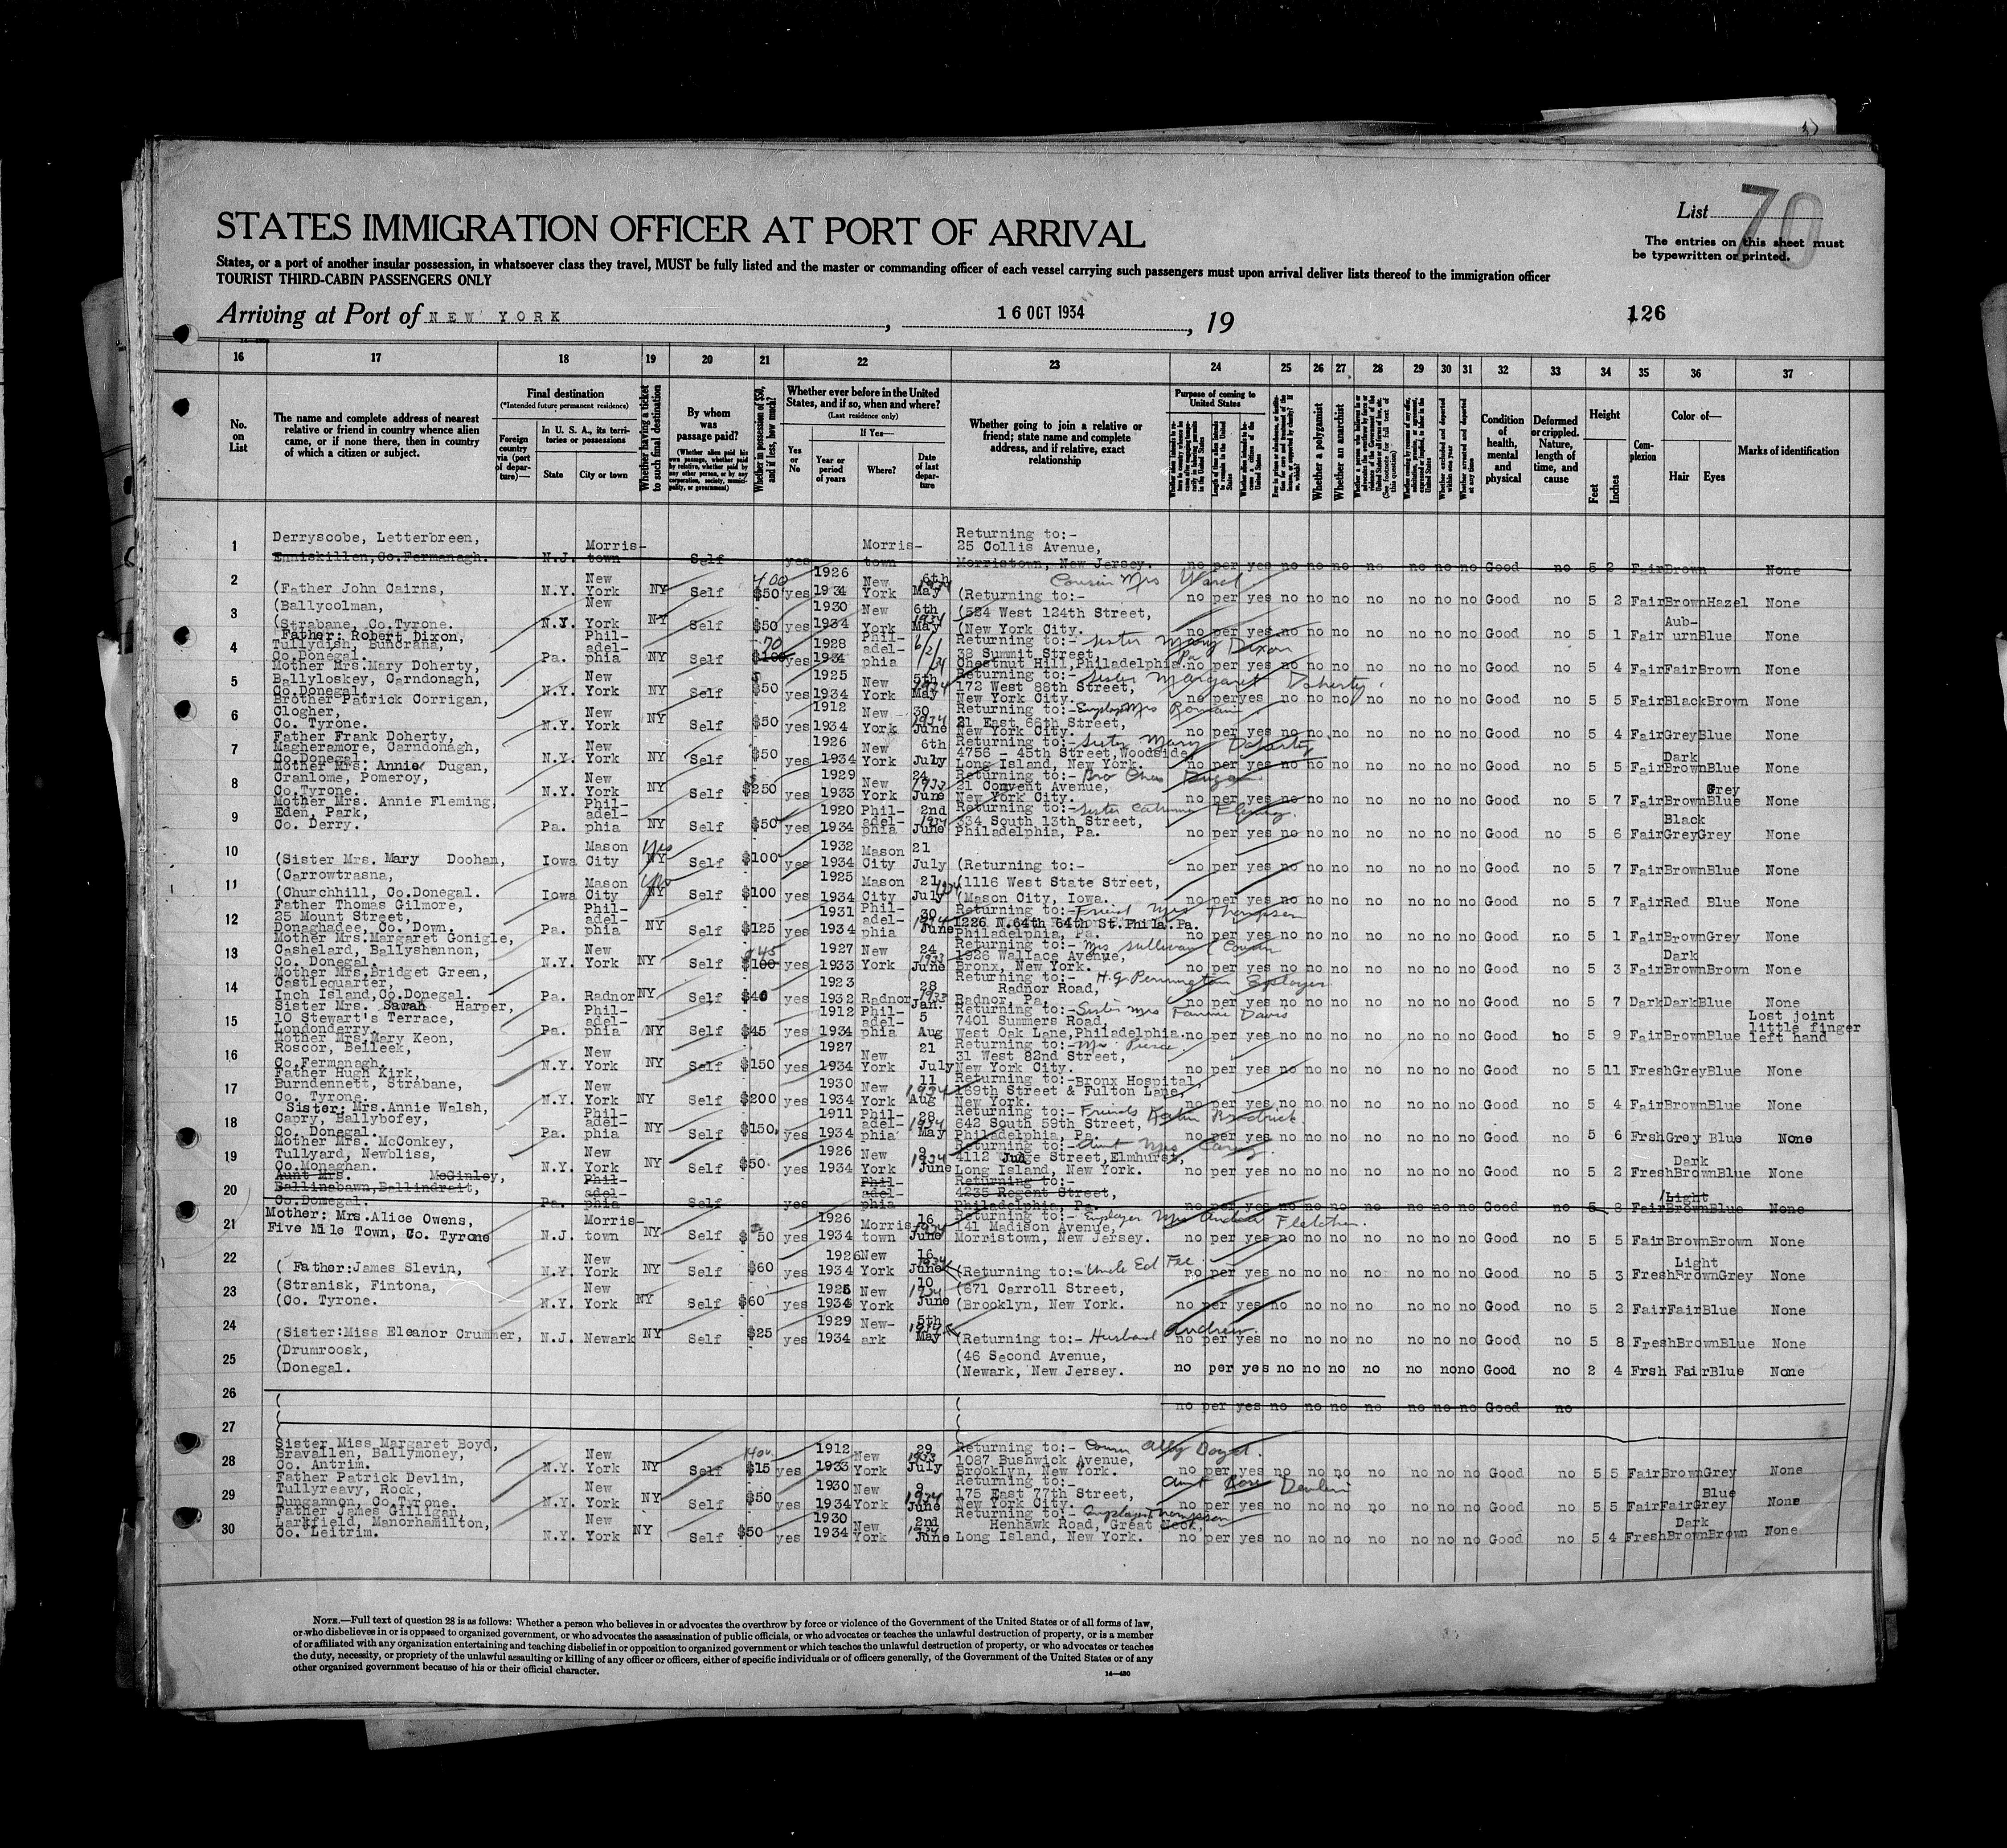 List 70
STATES IMMIGRATION OFFICER AT PORT OF ARRIVAL
The entries on this sheet must
be typewritten or printed.
States, or a port of another insular possession, in whatsoever class they travel, MUST be fully listed and the master or commanding officer of each vessel carrying such passengers must upon arrival deliver lists thereof to the immigration officer
TOURIST THIRD-CABIN PASSENGERS ONLY
Arriving at Port of NEW YORK, 16 OCT 1934, 19
126
16 17 18 19 20 21 22 23 24 25 26 27 28 29 30 31 32 33 34 35 36 37
No. on List
The name and complete address of nearest relative or friend in country whence alien came, or if none there, then in country of which a citizen or subject.
Final destination
(*Intended future permanent residence)
Foreign country via (port of departure)—
In U. S. A., its territories or possessions
State City or town
Whether having a ticket to such final destination
By whom was passage paid?
(Whether alien paid his own passage, whether paid by relative, whether paid by any other person, or by any corporation, society, municipality, or government)
Whether in possession of $50, and if less, how much?
Whether ever before in the United States, and if so, when and where?
(Last residence only)
Yes or No
If Yes—
Year or period of years
Where?
Date of last departure
Whether going to join a relative or friend; state name and complete address, and if relative, exact relationship
Purpose of coming to United States
Whether a polygamist
Whether an anarchist
Condition of health, mental and physical
Deformed or crippled. Nature, length of time, and cause
Height
Feet Inches
Complexion
Color of—
Hair Eyes
Marks of identification
1 Derryscobe, Letterbreen,
Enniskillen, Co.Fermanagh. N.J. Morristown Self yes Morristown Returning to:- 25 Collis Avenue, Morristown, New Jersey. no per yes no no no no no no no Good no 5 2 Fair Brown None
2 (Father John Cairns, N.Y. New York NY Self 400 $50 yes 1926 1934 New York 6th May 1934 Cousin Mrs Ward (Returning to:- no per yes no no no no no no no Good no 5 2 Fair Brown Hazel None
3 (Ballycolman,
(Strabane, Co.Tyrone. N.Y. New York NY Self $50 yes 1930 1934 New York 6th May 1934 (524 West 124th Street, (New York City. no per yes no no no no no no no Good no 5 1 Fair Auburn Blue None
4 Father: Robert Dixon,
Tullydish, Buncrana,
Co.Donegal. Pa. Philadelphia NY Self 70 $100 yes 1928 1934 Philadelphia 6/2/34 Returning to:- Sister Mary Dixon 38 Summit Street, Chestnut Hill, Philadelphia. Pa no per yes no no no no no no no Good no 5 4 Fair Fair Brown None
5 Mother Mrs.Mary Doherty,
Ballyloskey, Carndonagh,
Co.Donegal. N.Y. New York NY Self $50 yes 1925 1934 New York 5th May 1934 Returning to:- Sister Margaret Doherty 172 West 88th Street, New York City. no per yes no no no no no no no Good no 5 5 Fair Black Brown None
6 Brother Patrick Corrigan,
Clogher,
Co. Tyrone. N.Y. New York NY Self $50 yes 1912 1934 New York 30 June 1934 Returning to:- Employ Mrs 21 East 66th Street, New York City. no per yes no no no no no no no Good no 5 4 Fair Grey Blue None
7 Father Frank Doherty,
Magheramore, Carndonagh,
Co.Donegal. N.Y. New York NY Self $50 yes 1926 1934 New York 6th July Returning to:- Sister Mary Doherty 4756 - 45th Street, Woodside Long Island, New York. no per yes no no no no no no no Good no 5 5 Fair Dark Brown Blue None
8 Mother Mrs: Annie Dugan,
Cranlome, Pomeroy,
Co.Tyrone. N.Y. New York NY Self $250 yes 1929 1933 New York 24 June 1933 Returning to:- Bro Chas Dugan 21 Convent Avenue, New York City. no per yes no no no no no no no Good no 5 7 Fair Brown Grey Blue None
9 Mother Mrs. Annie Fleming,
Eden, Park,
Co. Derry. Pa. Philadelphia NY Self $50 yes 1920 1934 Philadelphia 2nd June 1934 Returning to:- Sister Catherine Fleming 334 South 13th Street, Philadelphia, Pa. no per yes no no no no no no no Good no 5 6 Fair Black Grey Grey None
10 (Sister Mrs. Mary Doohan, Iowa Mason City yes NY Self $100 yes 1932 1934 Mason City 21 July (Returning to:- no per yes no no no no no no no Good no 5 7 Fair Brown Blue None
11 (Carrowtrasna,
(Churchhill, Co.Donegal. Iowa Mason City yes NY Self $100 yes 1925 1934 Mason City 21 July 1934 (1116 West State Street, (Mason City, Iowa. no per yes no no no no no no no Good no 5 7 Fair Red Blue None
12 Father Thomas Gilmore,
25 Mount Street,
Donaghadee, Co. Down. Pa. Philadelphia NY Self $125 yes 1931 1934 Philadelphia 30 June 1934 Returning to:- Friend Mrs Thompson 1226 N.64th 64th St. Phila. Pa. Philadelphia, Pa. no per yes no no no no no no no Good no 5 1 Fair Brown Grey None
13 Mother Mrs.Margaret Gonigle,
Cashelard, Ballyshannon,
Co. Donegal. N.Y. New York NY Self $45 $100 yes 1927 1933 New York 24 June 1933 Returning to:- Mrs Sullivan Cousin 1926 Wallace Avenue, Bronx, New York. no per yes no no no no no no no Good no 5 3 Fair Dark Brown Brown None
14 Mother Mrs.Bridget Green,
Castlequarter,
Inch Island, Co.Donegal. Pa. Radnor NY Self $40 yes 1923 1932 Radnor 28 Jan. 1933 Returning to:- H.G Pennington Employer Radnor Road, Radnor, Pa. no per yes no no no no no no no Good no 5 7 Dark Dark Blue None
15 Sister Mrs. Sarah Harper,
10 Stewart's Terrace,
Londonderry. Pa. Philadelphia NY Self $45 yes 1912 1934 Philadelphia 5 Aug Returning to:- Sister Mrs Fannie Davis 7401 Summers Road, West Oak Lane, Philadelphia. no per yes no no no no no no no Good no 5 9 Fair Brown Blue Lost joint little finger left hand
16 Mother Mrs.Mary Keon,
Roscor, Belleek,
Co.Fermanagh. N.Y. New York NY Self $150 yes 1927 1934 New York 21 July Returning to:- Mrs Pierce 31 West 82nd Street, New York City. no per yes no no no no no no no Good no 5 11 Fresh Grey Blue None
17 Father Hugh Kirk,
Burndennett, Strabane,
Co. Tyrone. N.Y. New York NY Self $200 yes 1930 1934 New York 11 Aug 1934 Returning to:- Bronx Hospital, 169th Street & Fulton Lane, New York. no per yes no no no no no no no Good no 5 4 Fair Brown Blue None
18 Sister: Mrs.Annie Walsh,
Capry, Ballybofey,
Co. Donegal. Pa. Philadelphia NY Self $150. yes 1911 1934 Philadelphia 28 May 1934 Returning to:- Friends 642 South 59th Street, Philadelphia, Pa. no per yes no no no no no no no Good no 5 6 Frsh Grey Blue None
19 Mother Mrs. McConkey,
Tullyard, Newbliss,
Co.Monaghan. N.Y. New York NY Self $50. yes 1926 1934 New York 9 June 1934 Returning to:- Aunt Mrs 4112 Judge Street, Elmhurst, Long Island, New York. no per yes no no no no no no no Good no 5 2 Fresh Dark Brown Blue None
20 Aunt Mrs. McGinley,
Ballinabawn, Ballindrait,
Co.Donegal. Pa. Philadelphia Self yes Philadelphia Returning to:- 4235 Regent Street, Philadelphia, Pa. no per yes no no no no no no no Good no 5 8 Fair Light Brown Blue None
21 Mother: Mrs.Alice Owens,
Five Mile Town, Co. Tyrone N.J. Morristown NY Self $50 yes 1926 1934 Morristown 16 June 1934 Returning to:- Employer Mrs Andrew Fletcher. 141 Madison Avenue, Morristown, New Jersey. no per yes no no no no no no no Good no 5 5 Fair Brown Brown None
22 ( Father:James Slevin, N.Y. New York NY Self $60 yes 1926 1934 New York 16 June 1934 (Returning to:- Uncle Ed Fee no per yes no no no no no no no Good no 5 3 Fresh Light Brown Grey None
23 (Stranisk, Fintona,
(Co. Tyrone. N.Y. New York NY Self $60 yes 1925 1934 New York 10 June 1934 (671 Carroll Street, (Brooklyn, New York. no per yes no no no no no no no Good no 5 2 Fair Fair Blue None
24 (Sister:Miss Eleanor Crummer, N.J. Newark NY Self $25 yes 1929 1934 Newark 5th May 1934 (Returning to:- Husband Andrew. no per yes no no no no no no no Good no 5 8 Fresh Brown Blue None
25 (Drumroosk,
(Donegal. (46 Second Avenue, (Newark, New Jersey. no per yes no no no no no no no Good no 2 4 Frsh Fair Blue None
26 no per yes no no no no no no no Good no
27
28 Sister Miss Margaret Boyd,
Bravallen, Ballymoney,
Co. Antrim. N.Y. New York NY Self $15 yes 1912 1933 New York 29 July 1933 Returning to:- Cousin Ally Boyd. 1087 Bushwick Avenue, Brooklyn, New York. no per yes no no no no no no no Good no 5 5 Fair Brown Grey None
29 Father Patrick Devlin,
Tullyreavy, Rock,
Dungannon, Co.Tyrone. N.Y. New York NY Self $50 yes 1930 1934 New York 9 June 1934 Returning to:- Aunt Rose Devlin 175 East 77th Street, New York City. no per yes no no no no no no no Good no 5 5 Fair Fair Blue Grey None
30 Father James Gilligan,
Larkfield, Manorhamilton,
Co. Leitrim. N.Y. New York NY Self $50 yes 1930 1934 New York 2nd June 1934 Returning to:- Employer Thompson Henhawk Road, Great Neck, Long Island, New York. no per yes no no no no no no no Good no 5 4 Fresh Dark Brown Brown None
NOTE.—Full text of question 28 is as follows: Whether a person who believes in or advocates the overthrow by force or violence of the Government of the United States or of all forms of law,
or who disbelieves in or is opposed to organized government, or who advocates the assassination of public officials, or who advocates or teaches the unlawful destruction of property, or is a member
of or affiliated with any organization entertaining and teaching disbelief in or opposition to organized government or which teaches the unlawful destruction of property, or who advocates or teaches
the duty, necessity, or propriety of the unlawful assaulting or killing of any officer or officers, either of specific individuals or of officers generally, of the Government of the United States or of any
other organized government because of his or their official character.
14—430